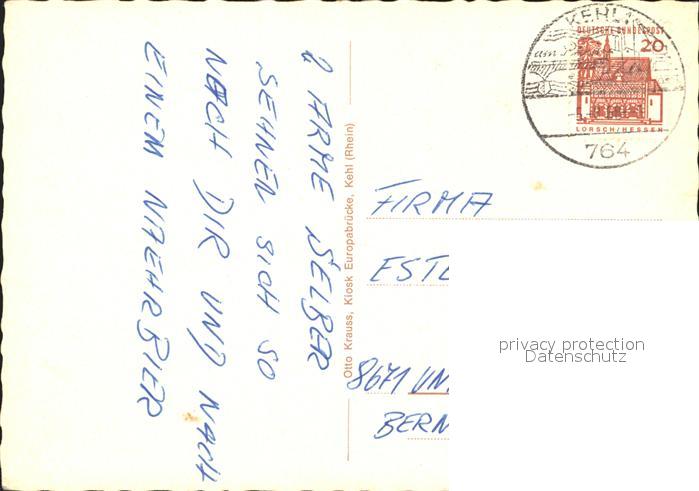 2 ARME SELBER
SEHNEN SICH SO
NACH DIR UND NACH
EINEM NAEHRBIER
Otto Krauss, Kiosk Europabrücke, Kehl (Rhein)
KEHL
764
DEUTSCHE BUNDESPOST
20
LORSCH/HESSEN
FIRMA
8671
privacy protection
Datenschutz